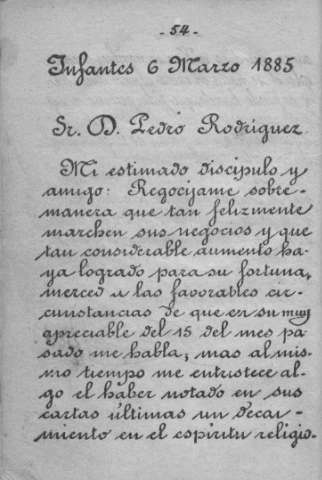 - 54 -
Infantes 6 Marzo 1885
Sr. D. Pedro Rodriguez.
Mi estimado discipulo y
amigo: Regocijame sobre-
manera que tan felizmente
marchen sus negocios y que
tan considerable aumento ha-
ya logrado para su fortuna,
merced a las favorables cir-
cunstancias de que en su muy
apreciable del 15 del mes pa-
sado me habla; mas al mis-
mo tiempo me entristece al-
go el haber notado en sus
cartas últimas un decai-
miento en el espíritu religio-